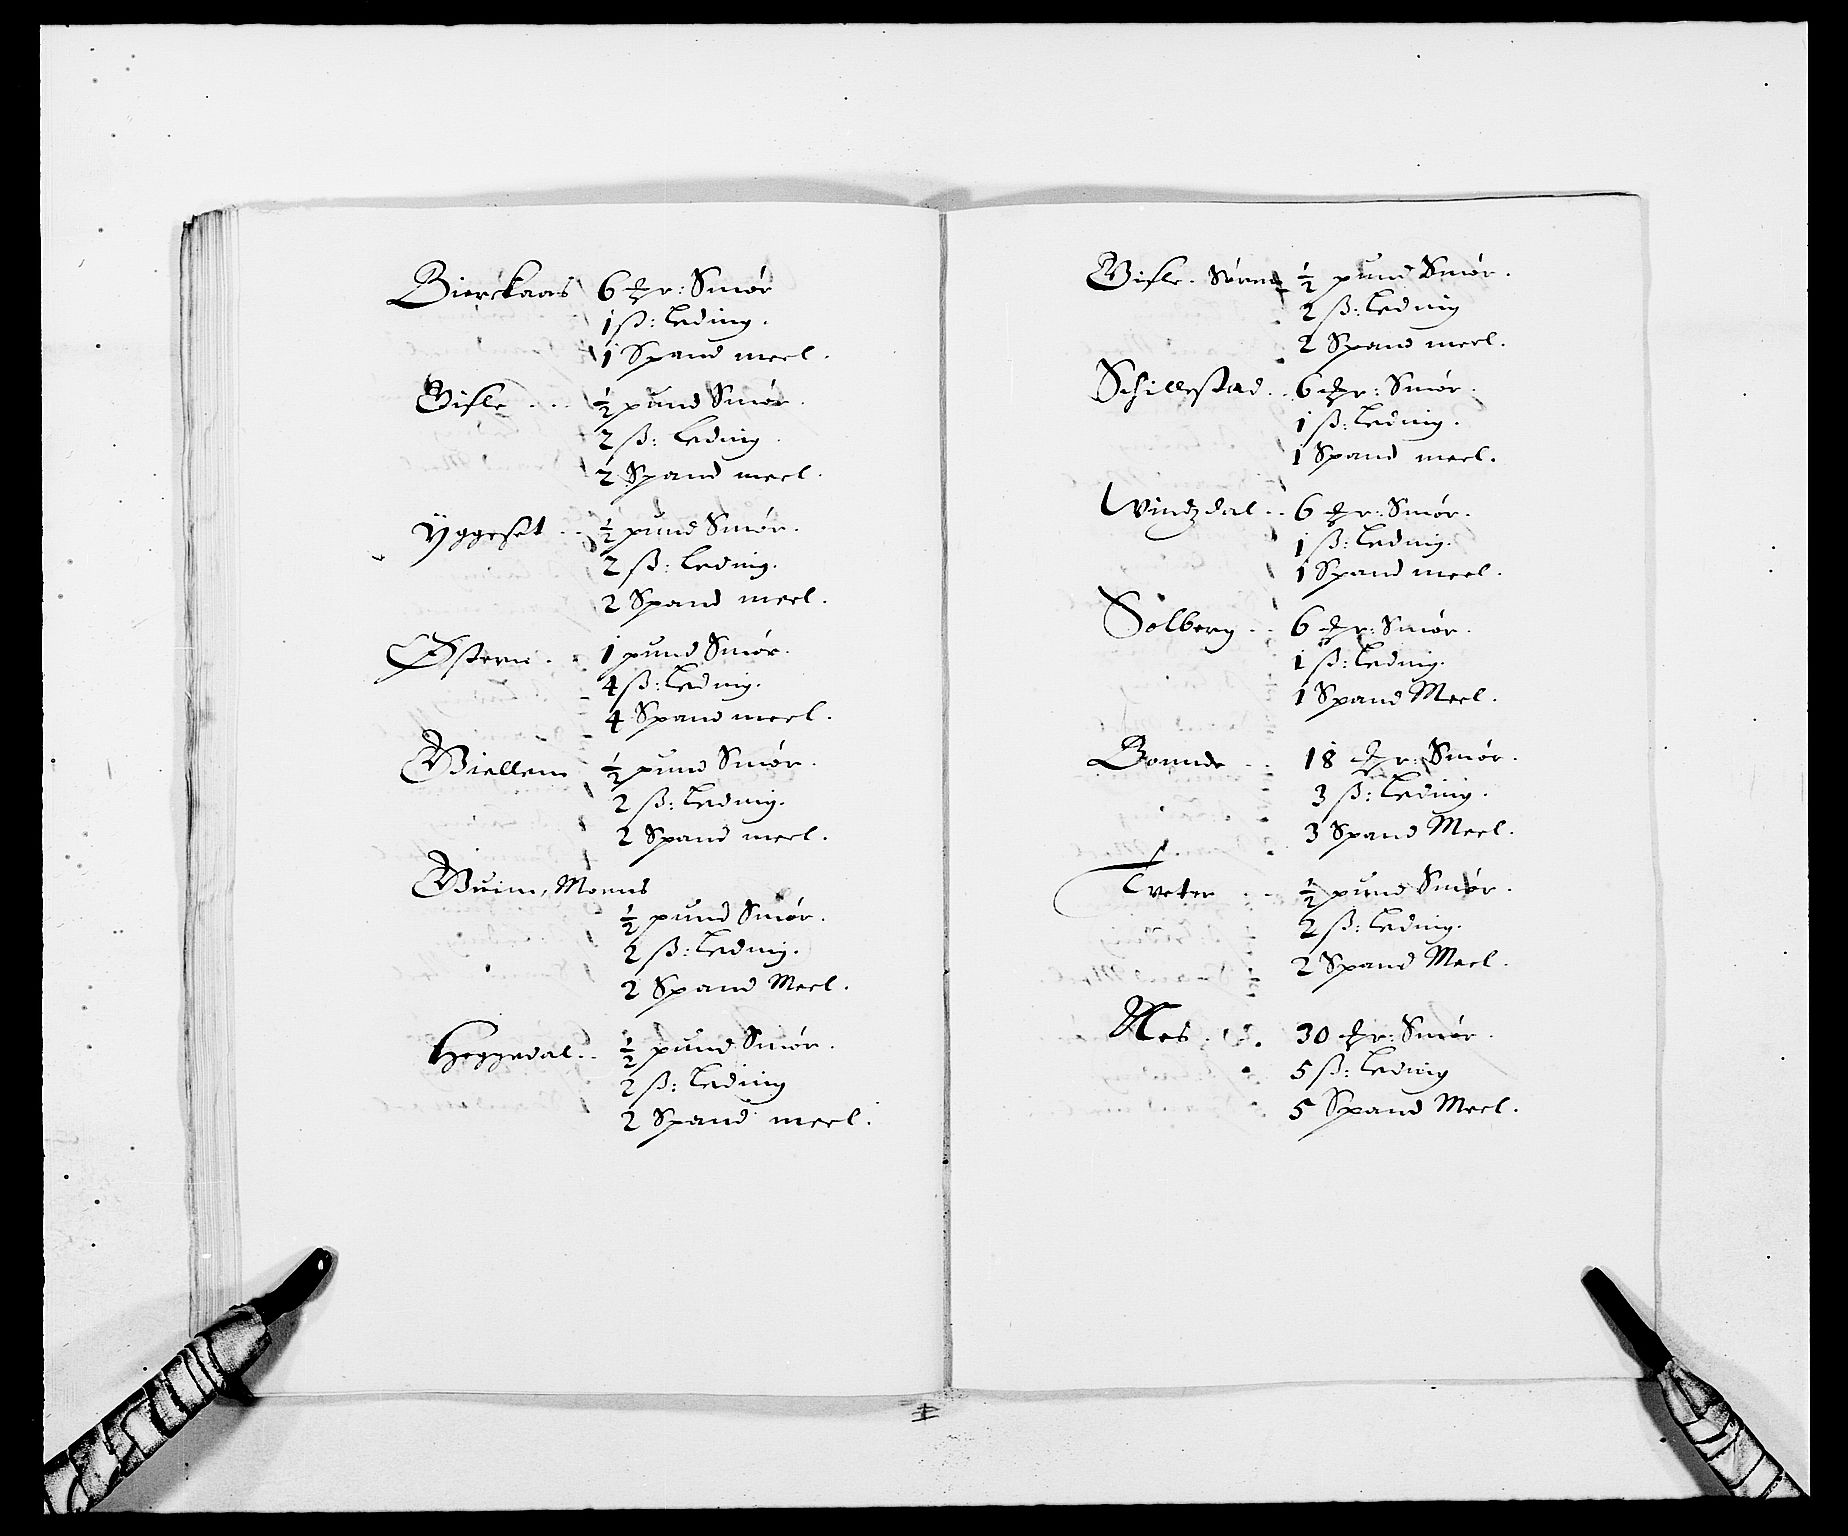 Bierckaas 6 ℔r: Smør
1 ß: Leding.
1 Spand meel.
Gisle .. ½ pund Smør.
2 ß: Leding.
2 Spand meel.
Ÿggeset .. ½ pund Smør.
2 ß: Leding.
2 Spand meel.
Østern . 1 pund Smør.
4 ß: Leding.
4 Spand meel.
Giellem ½ pund Smør.
2 ß: Leding.
2 Spand meel.
Guim, Moens
½ pund Smør.
2 ß: Leding.
2 Spand Meel.
Heggedal .. ½ pund Smør.
2 ß: Leding
2 Spand meel.
Gisle. Sørne ½ pund Smør.
2 ß: Leding
2 Spand meel.
Schillestad .. 6 ℔r: Smør.
1 ß: Leding.
1 Spand meel.
Windzdal .. 6 ℔r: Smør.
1 ß: Leding.
1 Spand meel.
Solberg .. 6 ℔r: Smør.
1 ß: Leding.
1 Spand Meel.
Bonnde .. 18 ℔r: Smør.
3 ß: Leding.
3 Spand Meel.
Tveter .. ½ pund Smør.
2 ß: Leding.
2 Spand Meel.
Nes . . 30 ℔r: Smør.
5 ß: Leding
5 Spand Meel.